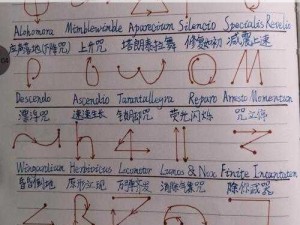 Alohomora Mimblewimble Aparecium Silencio Specialis Revelio
上升咒 塔朗泰拉舞 修复如初 减震止速
Descendo Ascendio Tarantallegra Reparo Arresto Momentum
漂浮咒 速速生长 荧光闪烁 咒立停
Wingardium Herbivicus Locomotor Lumos & Nox Finite Incantatem
昏昏倒地 原形立现 万弹齐发 除你武器